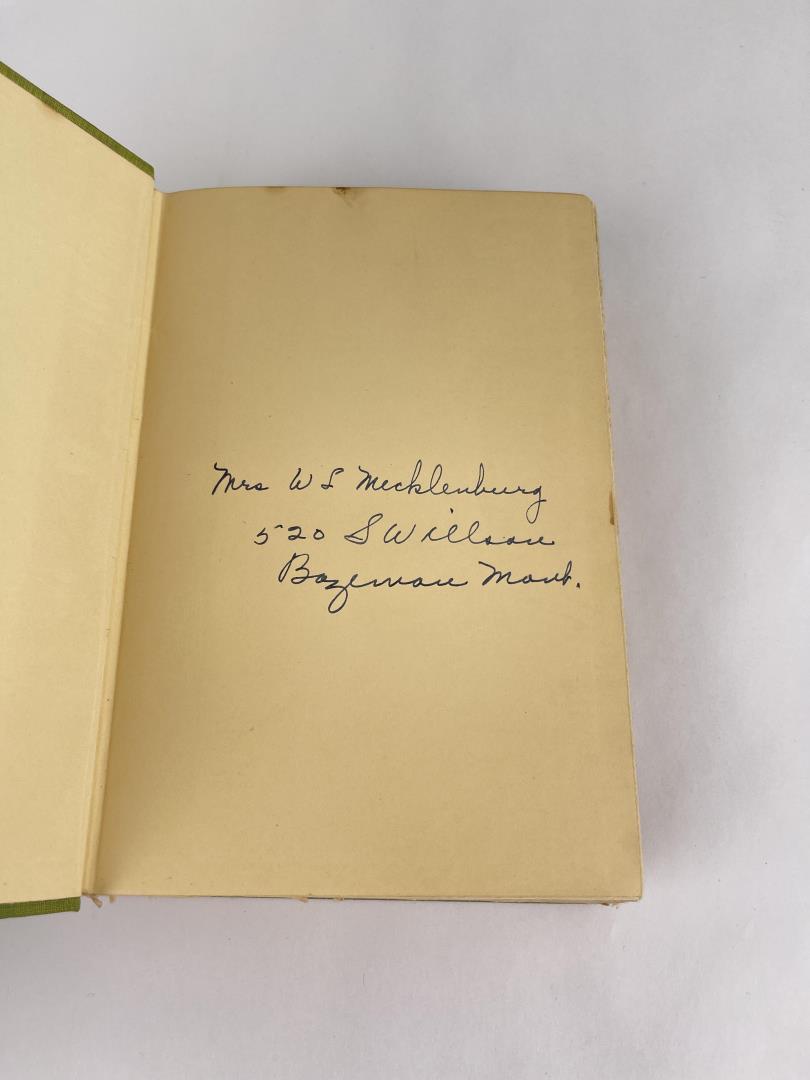 Mrs W S Mecklenburg
520 S Willson
Bozeman Mont.